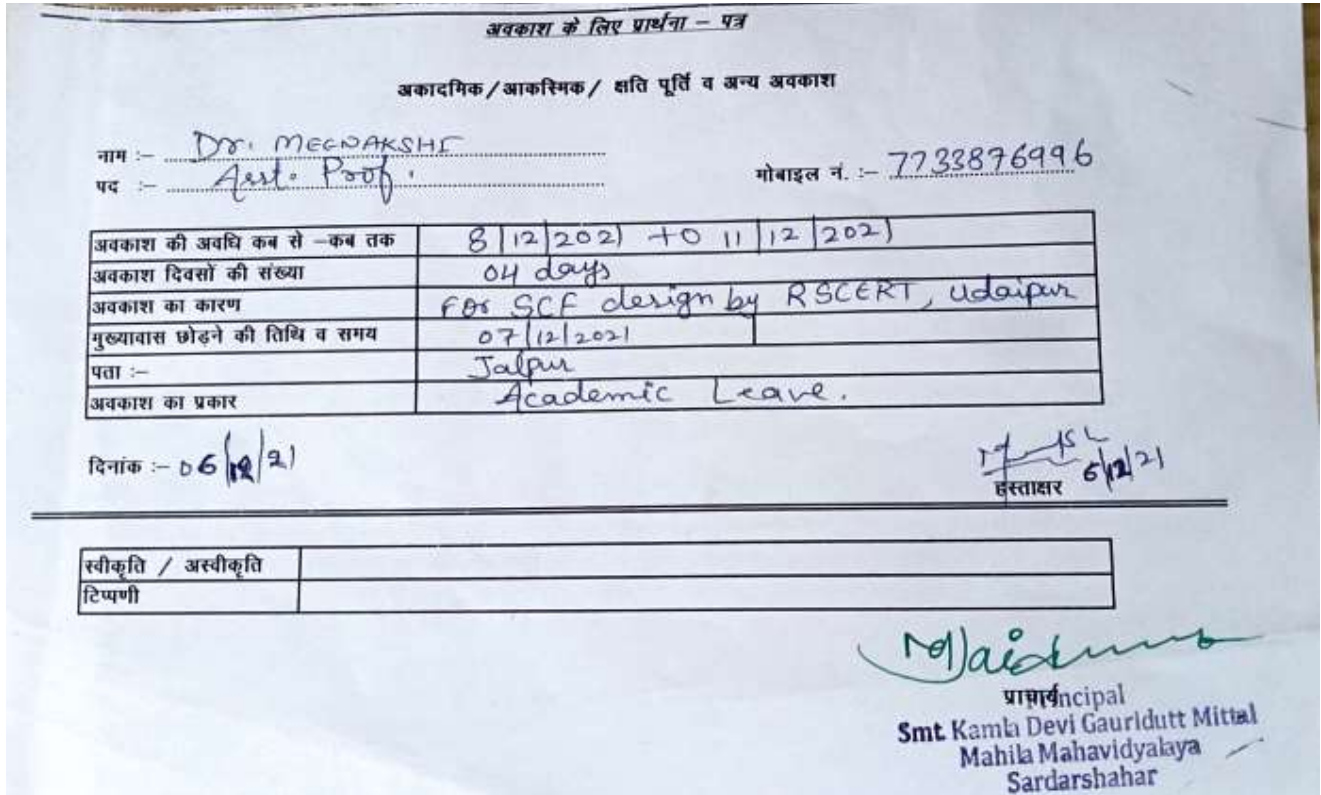 अवकाश के लिए प्रार्थना – पत्र
अकादमिक/आकस्मिक/ क्षति पूर्ति व अन्य अवकाश
नाम :– Dr. MEENAKSHI
पद :– Asst. Prof.
मोबाइल नं. :– 7733876996
अवकाश की अवधि कब से –कब तक 8/12/2021 to 11/12/2021
अवकाश दिवसों की संख्या 04 days
अवकाश का कारण For SCF design by RSCERT, Udaipur
मुख्यावास छोड़ने की तिथि व समय 07/12/2021
पता :– Jaipur
अवकाश का प्रकार Academic Leave.
दिनांक :– 06/12/21
6/12/21
हस्ताक्षर
स्वीकृति / अस्वीकृति
टिप्पणी
प्राचार्य
Principal
Smt. Kamla Devi Gauridutt Mittal
Mahila Mahavidyalaya
Sardarshahar